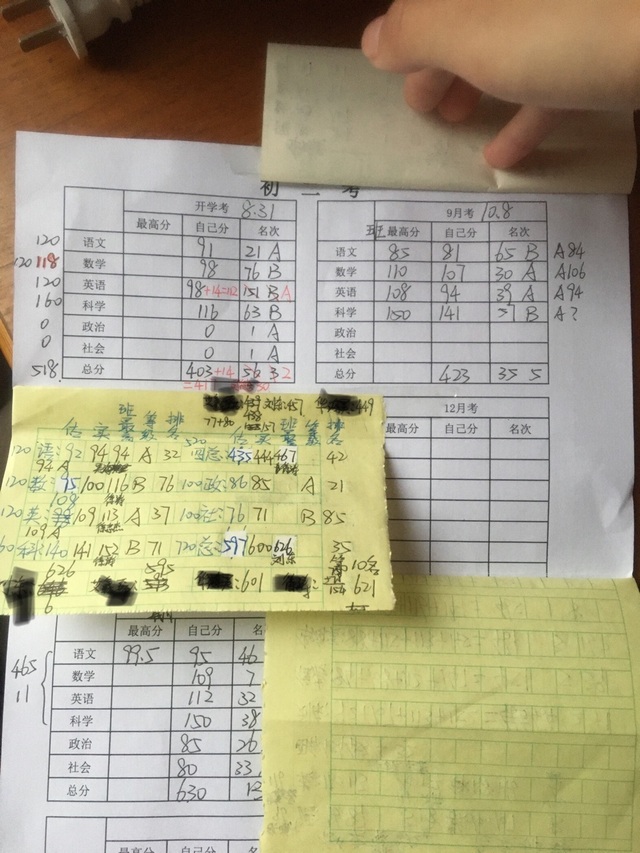 初 二 考
开学考 8.31
最高分 自己分 名次
120 语文 91 21 A
120 118 数学 98 76 B
120 英语 98+14=112 151 B A
160 科学 116 63 B
0 政治 0 1 A
0 社会 0 1 A
518. 总分 403+14
9月考 10.8
班 最高分 自己分 名次
语文 85 81 65 B A84
数学 110 107 30 A A106
英语 108 94 39 A A94
科学 150 141 57 B A?
政治
社会
总分 423 35 5
12月考
最高分 自己分 名次
班 等 排
估 实 最 级 名
120 语:92 94 94 A 32
94A
120 数:95 100 116 B 76
108
120 英: 109 113 A 37
109A
科:140 141 152 B 71
626 595
班 等 排
520 估 实 最 级 名
四总:435 444 467 42
100政:86 85 A 21
100社:76 71 B 85
720总:597 600 626 35
第10名
:601 621
最高分 自己分 名
语文 99.5 95 46
数学 109 7
英语 112 32
科学 150 38
政治 85 26
社会 80 33
总分 630 12
465
11
最高分 自己分